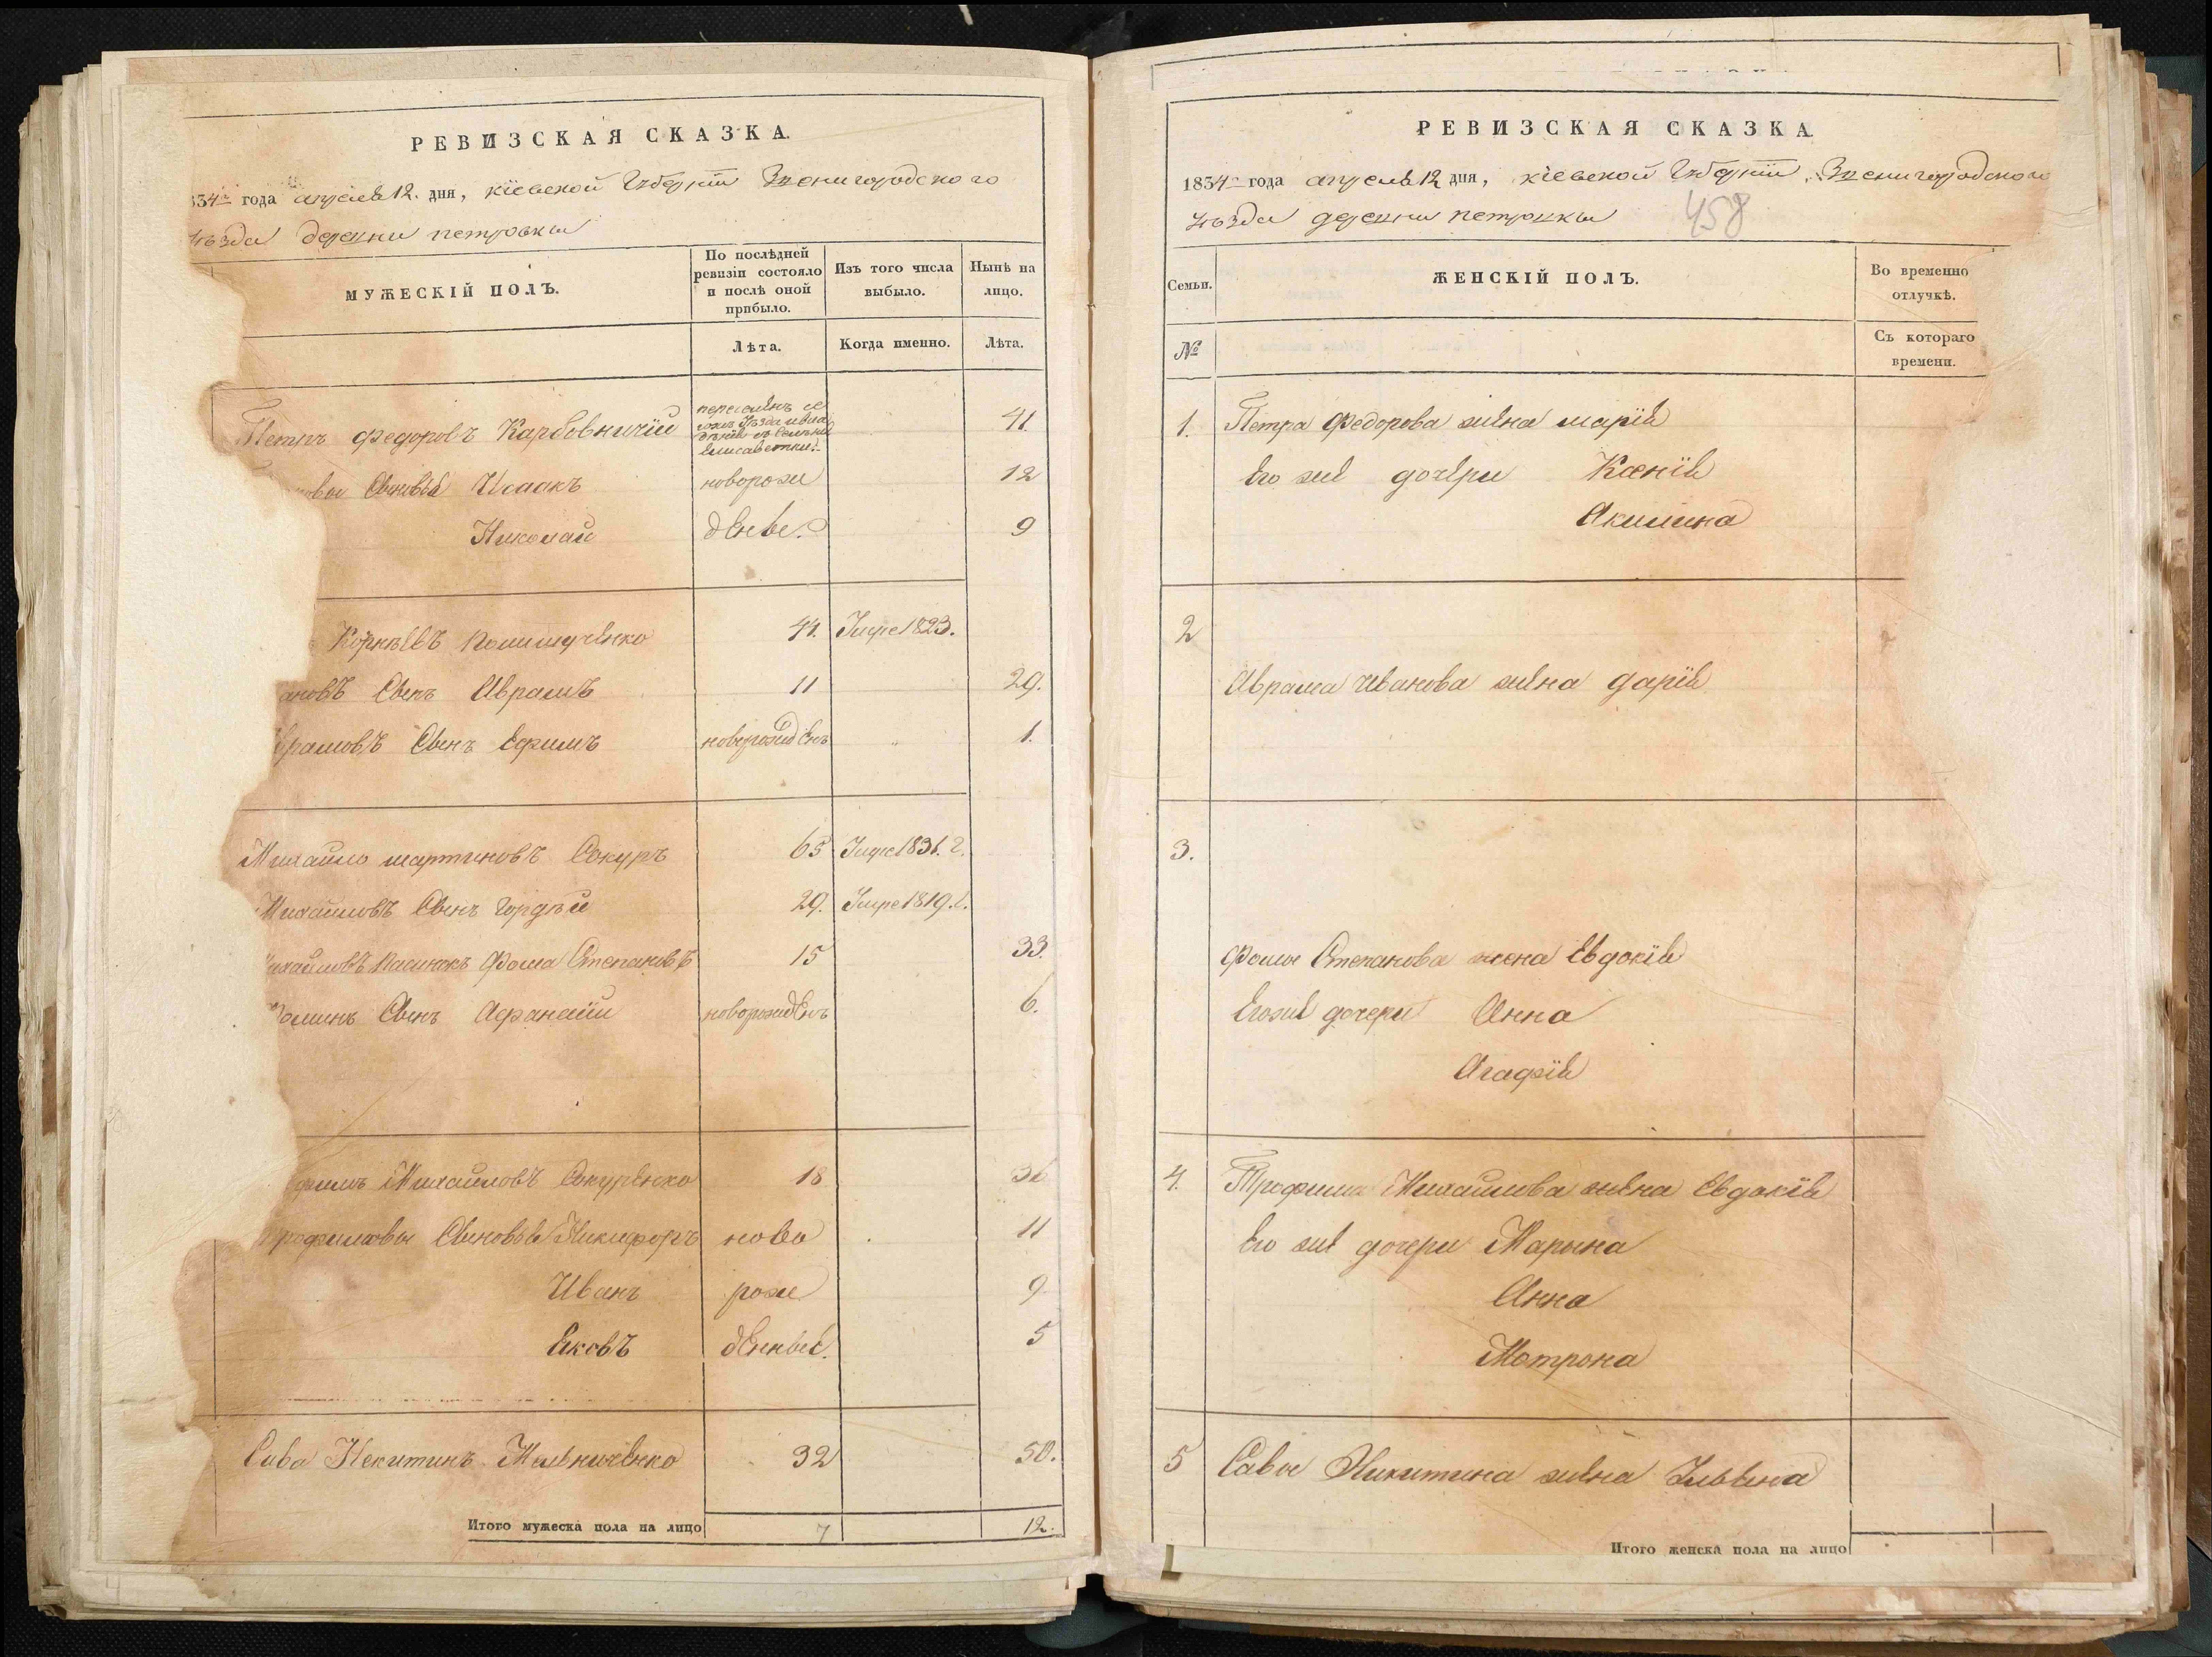 РЕВИЗСКАЯ СКАЗКА.
834го года апреля 12. дня, кіевской Губерніи Звенигородского
уѣзда деревни петровки
МУЖЕСКІЙ ПОЛЪ.
По послѣдней ревизіи состояло и послѣ оной прибыло.
Изъ того числа выбыло.
Нынѣ на лицо.
Лѣта.
Когда именно.
Лѣта.
Петръ федоровъ Карбовничій
переселенъ
Елисаветки.
41.
новы Сыновья Исаакъ новорож 12
Николай денные. 9
Корнѣевъ Полищученко 44. Умре 1823.
ановъ Сынъ Аврамъ 11 29.
врамовъ Сынъ Ефимъ новорожденъ 1.
Михайло мартиновъ Сокуръ 65 Умре 1831. г.
Михайловъ Сынъ Гордѣй 29. Умре 1819. г.
ихайловъ Пасинокъ Фома Степановъ 15 33.
Фоминъ Сынъ Афанасій новорожденъ 6.
фимъ Михайловъ Сокуренко 18 36
рофимовы Сыновья Никифоръ ново 11
Иванъ рож 9
Яковъ денные. 5
Сава Некитинъ Мельниченко 32 50.
Итого мужеска пола на лицо 7 12.
РЕВИЗСКАЯ СКАЗКА.
1834го года апреля 12 дня, кіевской Губерніи, Звенигородского
уѣзда деревни петровки
458
Семьи.
ЖЕНСКІЙ ПОЛЪ.
Во временно отлучкѣ.
№
Съ котораго времени.
1. Петра Федорова жена марія
Его же дочери Ксенія
Акилина
2
Аврама Иванова жена дарія
3.
Фомы Степанова жена Евдокія
Егоже дочери Анна
Агафія
4. Трофима Михайлова жена Евдокія
Его же дочери Марына
Анна
Мотрона
5 Савы Никитина жена Ульяна
Итого женска пола на лицо